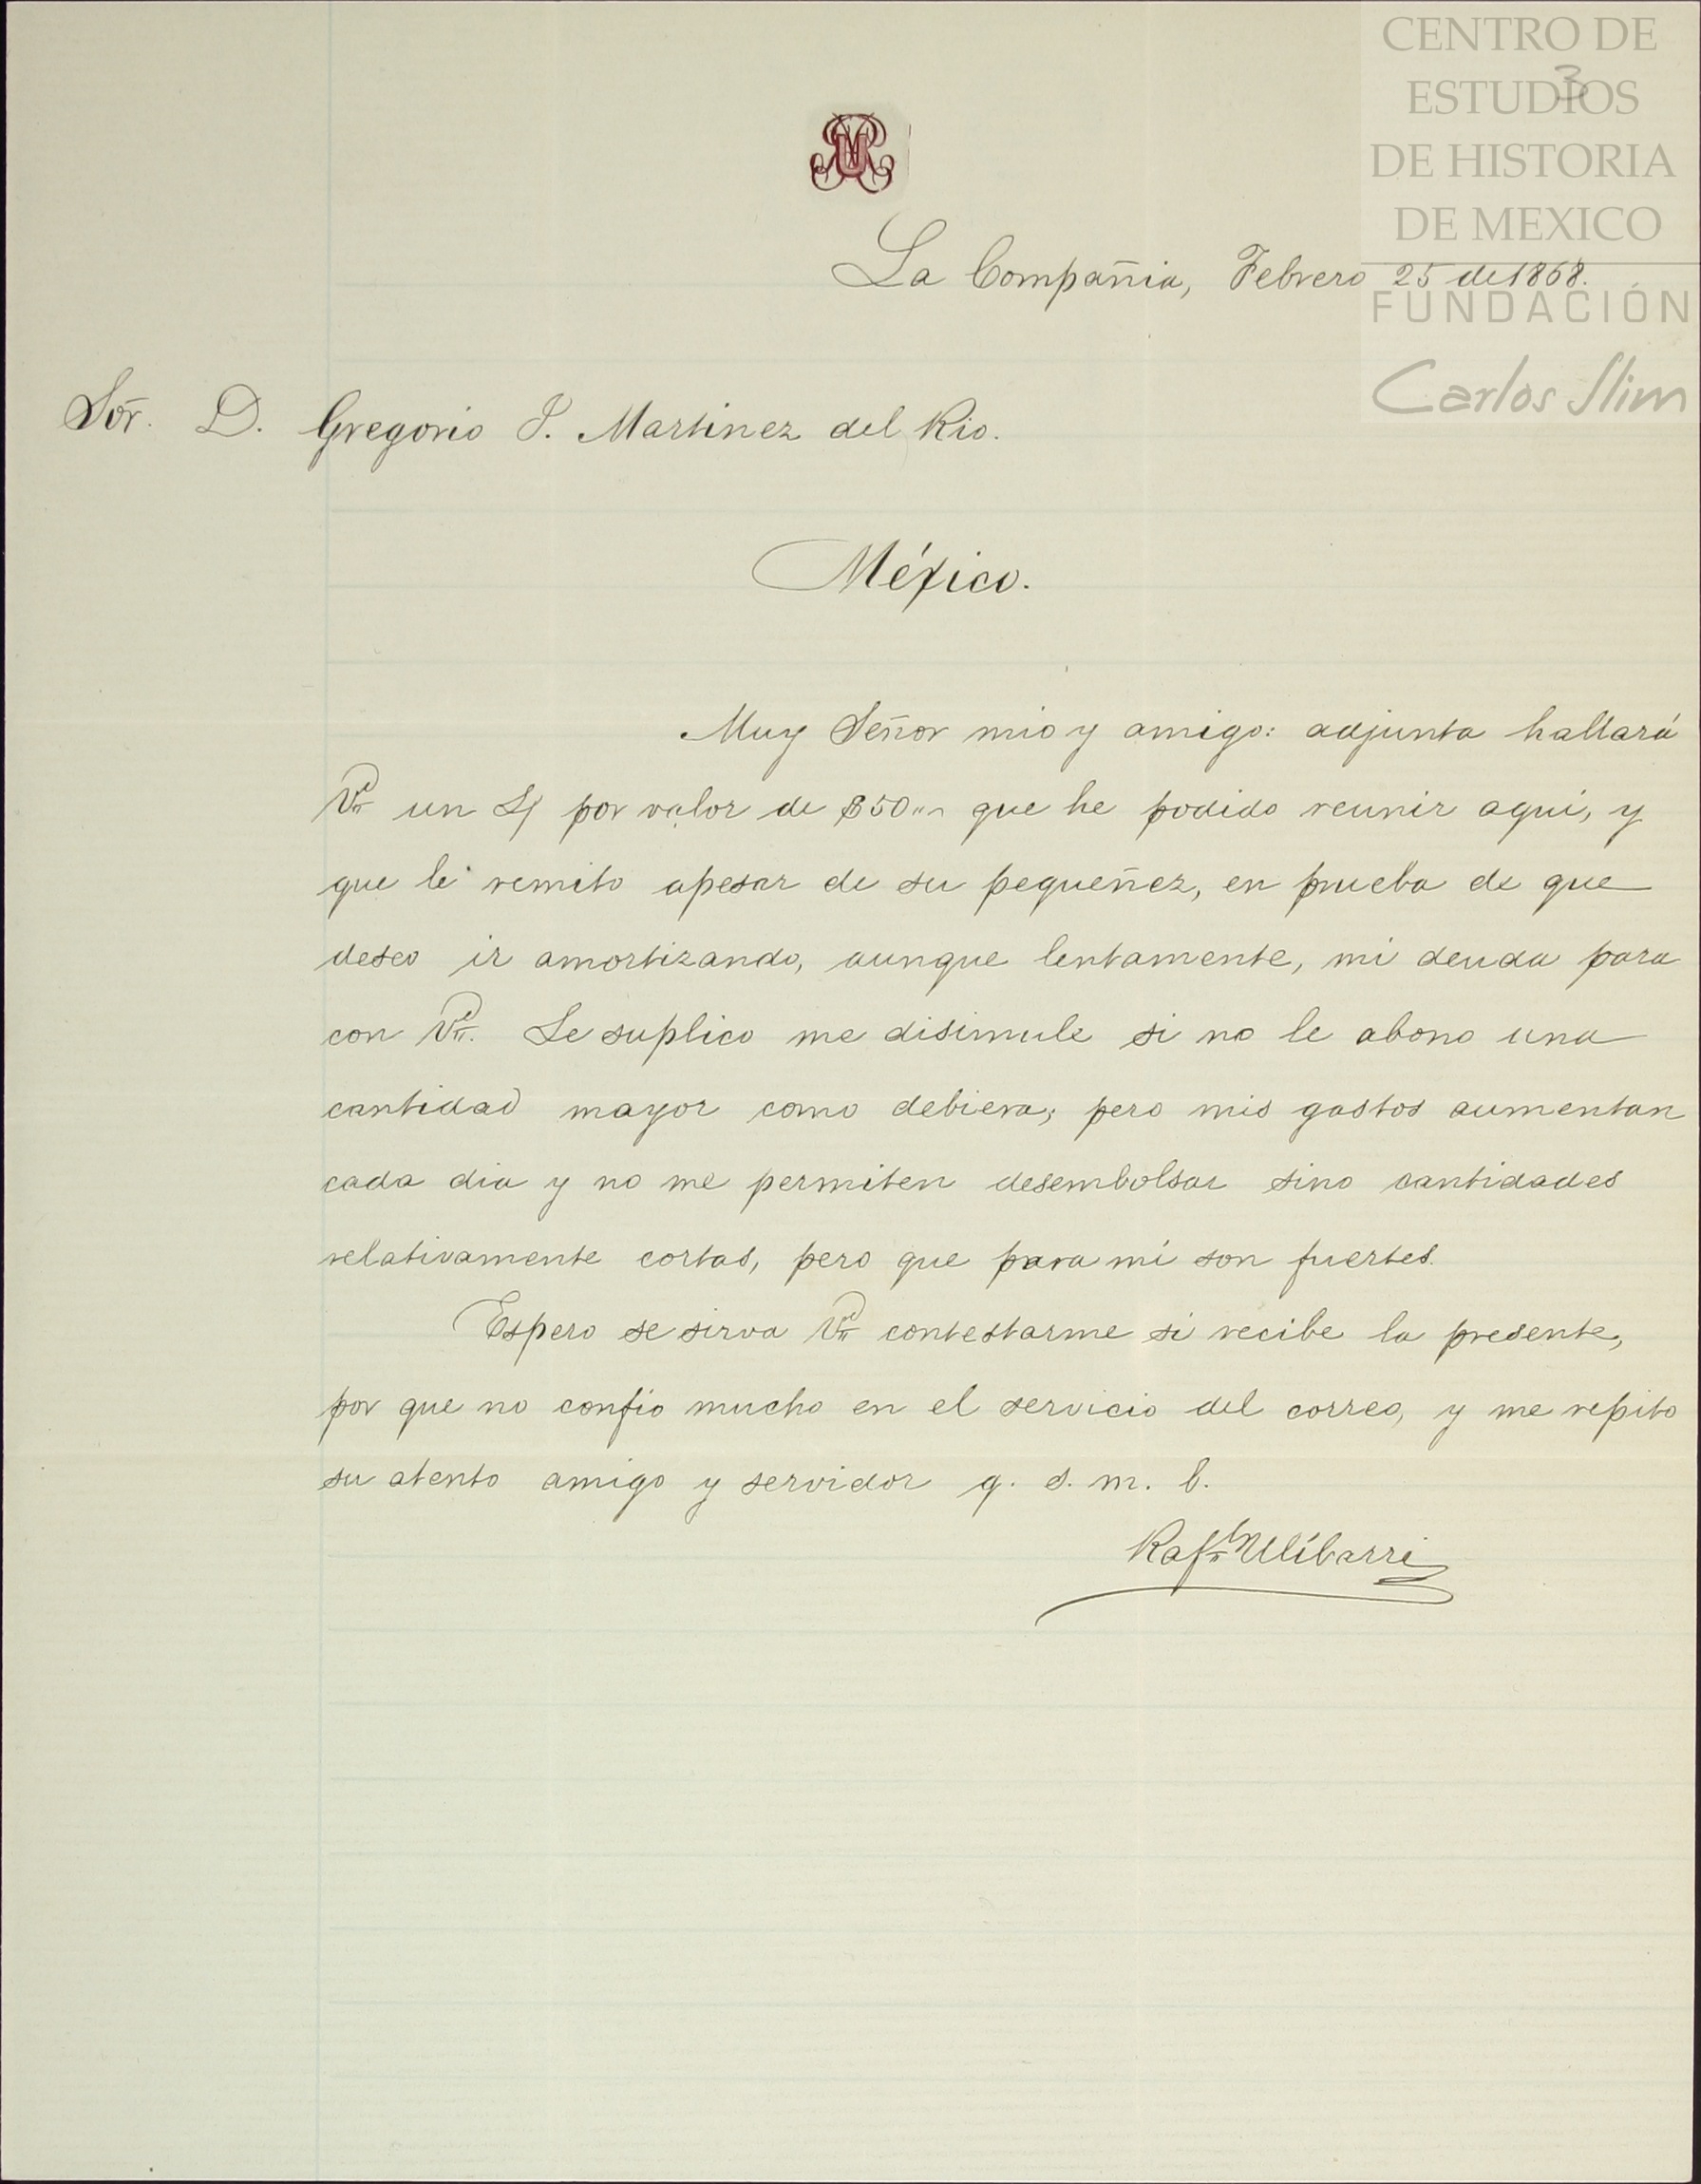 CENTRO DE
ESTUDIOS
DE HISTORIA
DE MEXICO
FUNDACIÓN
Carlos Slim
3
La Compañia, Febrero 25 de 1868.
Sor. D. Gregorio J. Martinez del Rio.
México.
Muy Señor mio y amigo: adjunta hallará
Vd. un por valor de $50 que he podido reunir aqui, y
que le remito apesar de su pequeñez, en prueba de que
deseo ir amortizando, aunque lentamente, mi deuda para
con Vd. Le suplico me disimule si no le abono una
cantidad mayor como debiera; pero mis gastos aumentan
cada dia y no me permiten desembolsar sino cantidades
relativamente cortas, pero que para mi son fuertes.
Espero se sirva Vd. contestarme si recibe la presente,
por que no confio mucho en el servicio del correo, y me repito
su atento amigo y servidor q. s. m. b.
Rafl. Ulíbarri